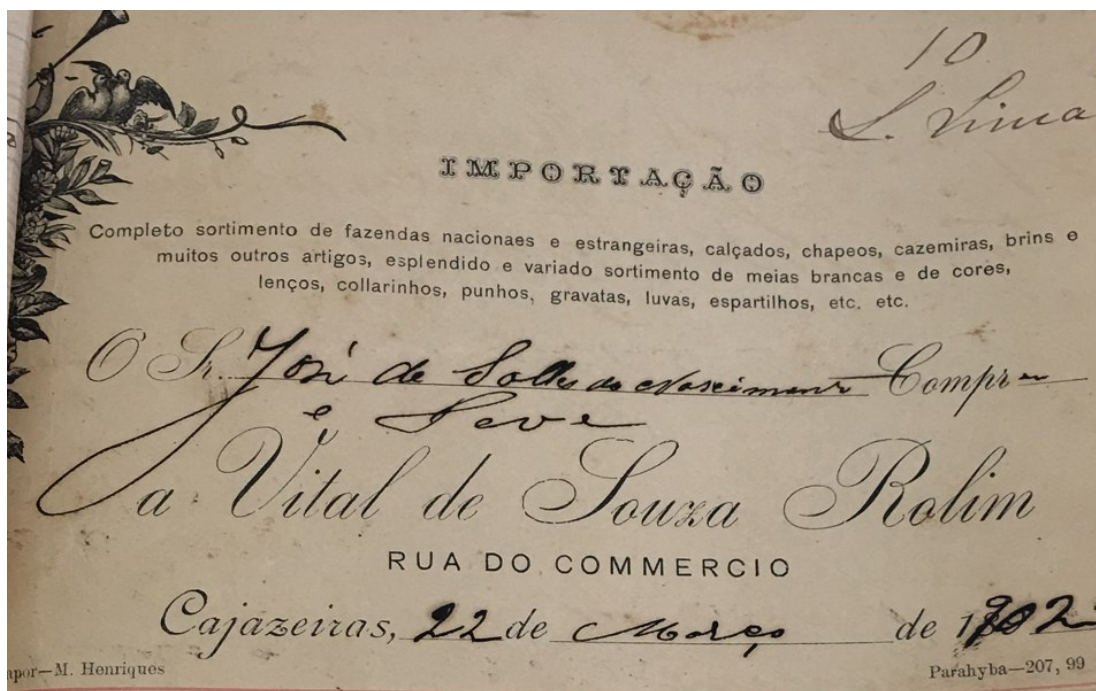 10
L. Lima
IMPORTAÇÃO
Completo sortimento de fazendas nacionaes e estrangeiras, calçados, chapeos, cazemiras, brins e
muitos outros artigos, esplendido e variado sortimento de meias brancas e de cores,
lenços, collarinhos, punhos, gravatas, luvas, espartilhos, etc. etc.
O Sr. José de Salles do Nascimento Comprou
e Deve
a Vital de Souza Rolim
RUA DO COMMERCIO
Cajazeiras, 22 de Março de 1902
apor—M. Henriques Parahyba—207, 99